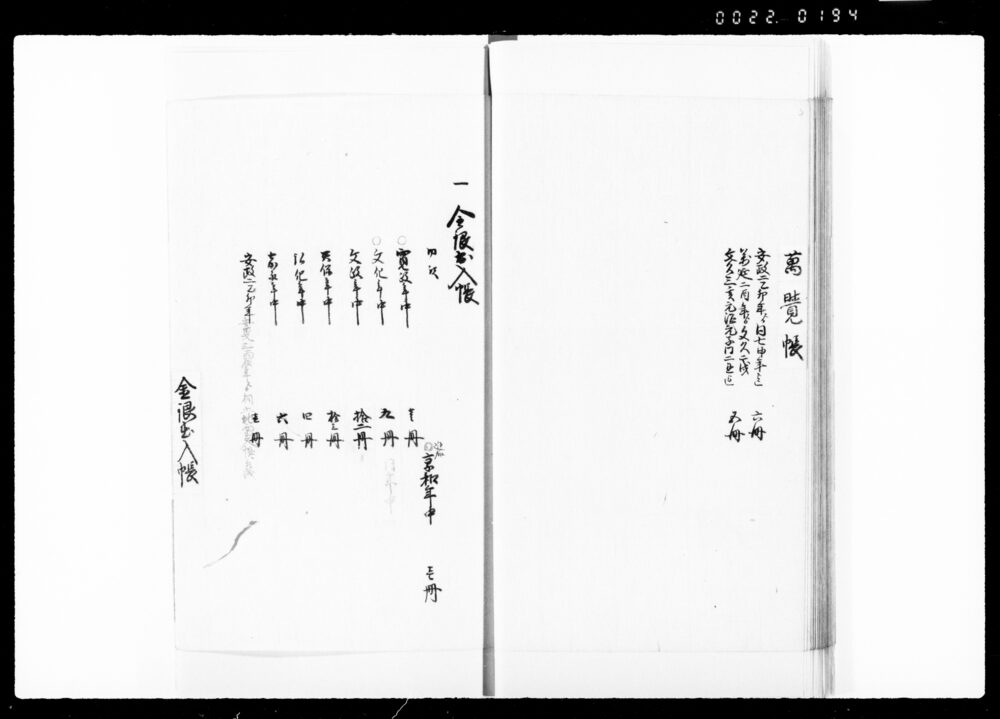 0022.0194
萬覚帳
安政二乙卯年ゟ同七申年迄 六冊
萬延二酉年ゟ文久二戌
文久三亥元治元子同二丑迄 五冊
一 金銀出入帳
目次
享和年中 壱冊
寛政年中 冊
文化年中 九冊
文政年中 拾二冊
天保年中 拾三冊
弘化年中 四冊
嘉永年中 六冊
安政二乙卯年 五冊
金銀出入帳